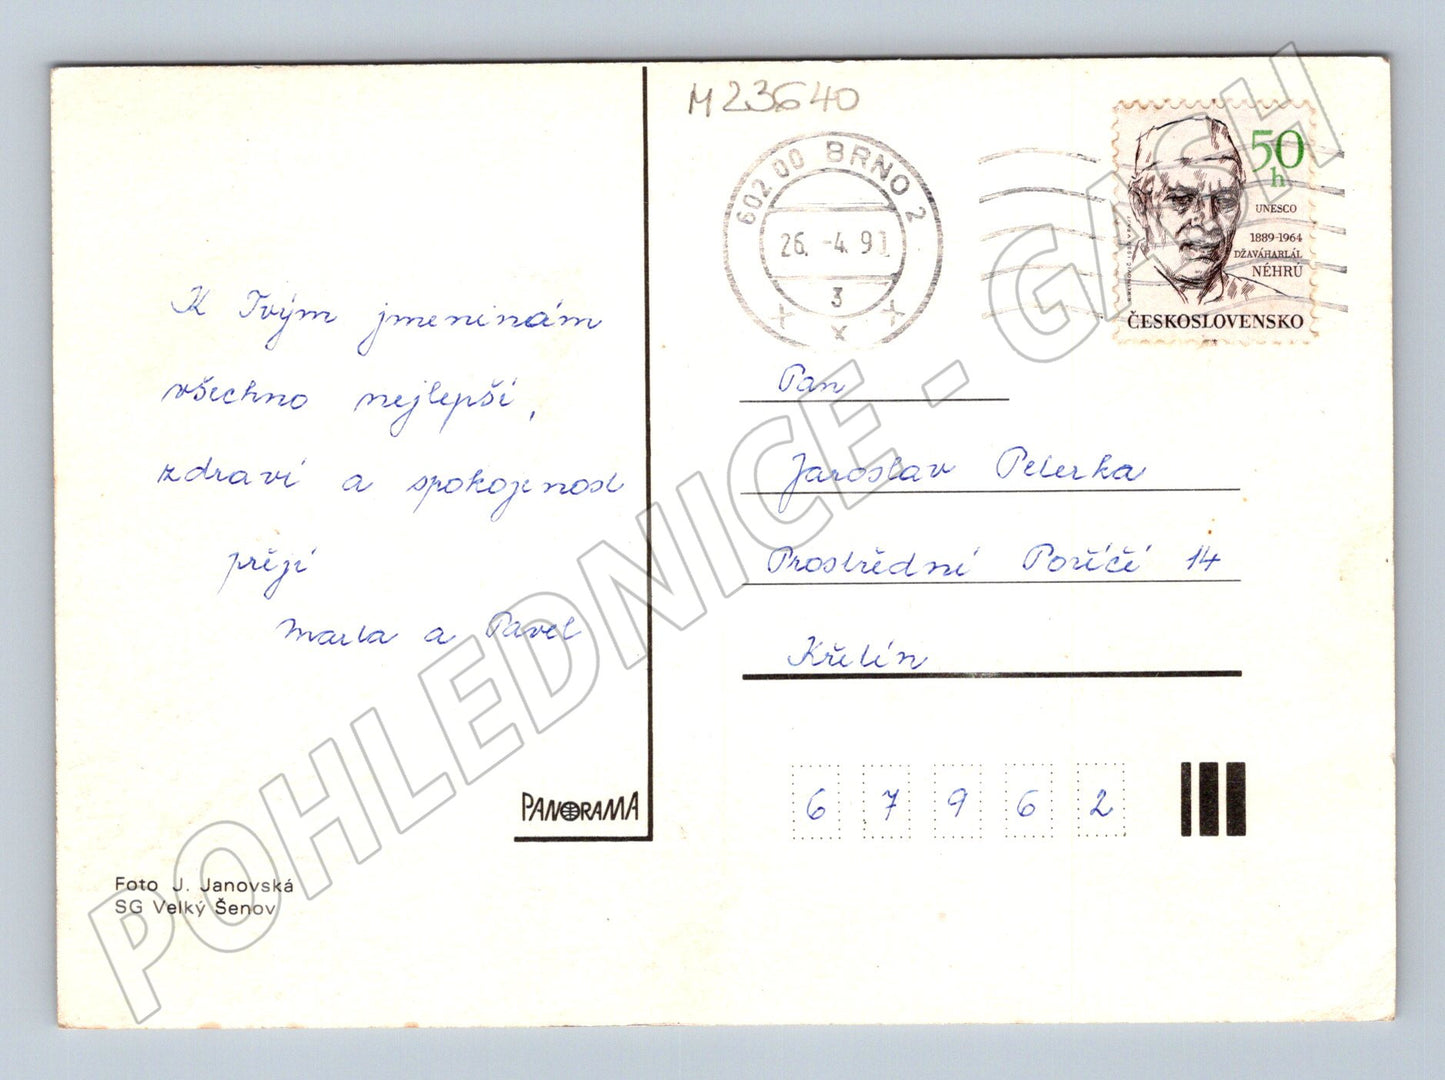 M23640
602 00 BRNO 2
26. -4. 91
3
50
h
UNESCO
1889-1964
DŽAVÁHARLÁL
NÉHRU
ČESKOSLOVENSKO
K Tvým jmeninám
všechno nejlepší,
zdraví a spokojenost
přejí
Marta a Pavel
Pan
Jaroslav Peterka
Prostřední Poříčí 14
Křetín
67962
PANORAMA
Foto J. Janovská
SG Velký Šenov
POHLEDNICE - GASH